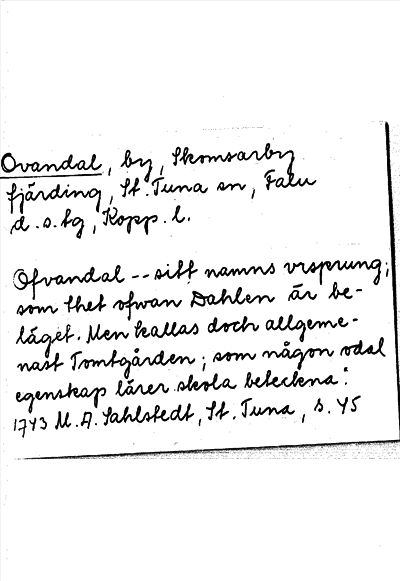 Ovandal, by, Skomsarby
fjärding, St. Tuna sn, Falu
d.s.tg, Kopp. l.
Ofvandal -- sitt namns vrsprung;
som thet ofwan Dahlen är be-
läget. Men kallas doch allgeme-
nast Tomtgården; som någon odal
egenskap lärer skola beteckna.
1743 M.A. Sahlstedt, St. Tuna, s. 45